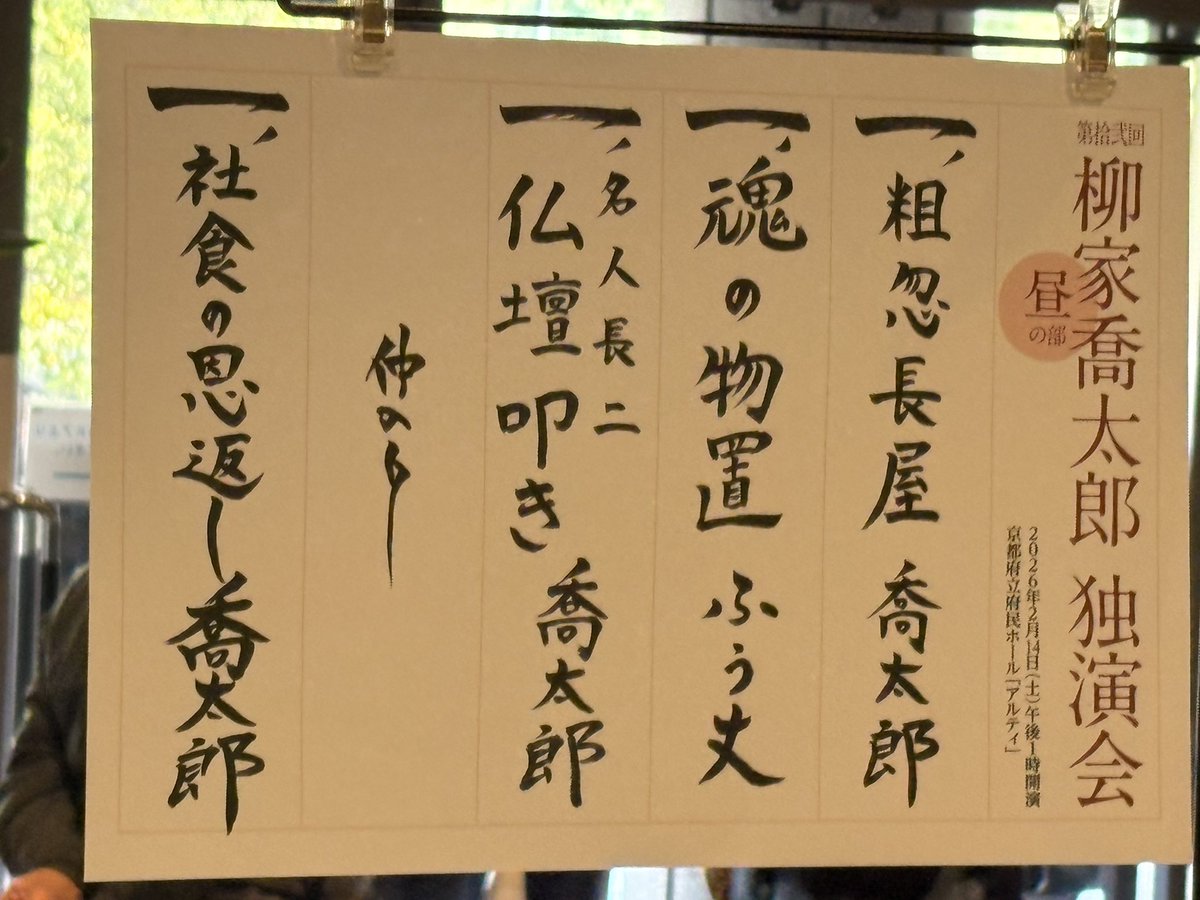 第拾弐回
柳家喬太郎 独演会
昼の部
2026年2月14日(土)午後1時開演
京都府立府民ホール「アルティ」
一、粗忽長屋 喬太郎
一、魂の物置 ふう丈
一、名人長二
仏壇叩き 喬太郎
仲のり
一、社食の恩返し 喬太郎